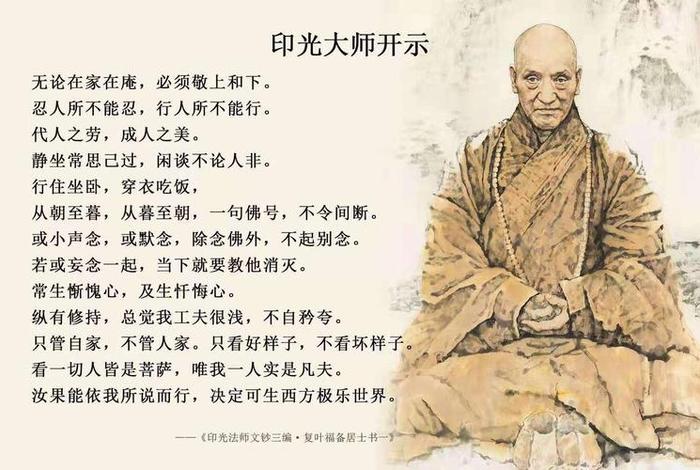 印光大师开示
无论在家在庵，必须敬上和下。
忍人所不能忍，行人所不能行。
代人之劳，成人之美。
静坐常思己过，闲谈不论人非。
行住坐卧，穿衣吃饭，
从朝至暮，从暮至朝，一句佛号，不令间断。
或小声念，或默念，除念佛外，不起别念。
若或妄念一起，当下就要教他消灭。
常生惭愧心，及生忏悔心。
纵有修持，总觉我工夫很浅，不自矜夸。
只管自家，不管人家。只看好样子，不看坏样子。
看一切人皆是菩萨，唯我一人实是凡夫。
汝果能依我所说而行，决定可生西方极乐世界。
——《印光法师文钞三编·复叶福备居士书一》